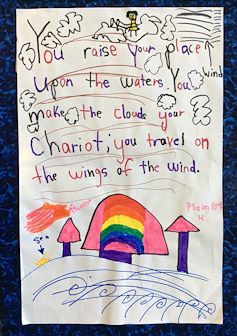 You raise your place
Upon the waters. You
wind
make the clouds your
Chariot; you travel on
the wings of the wind.
sunset
Psalm 104
sea